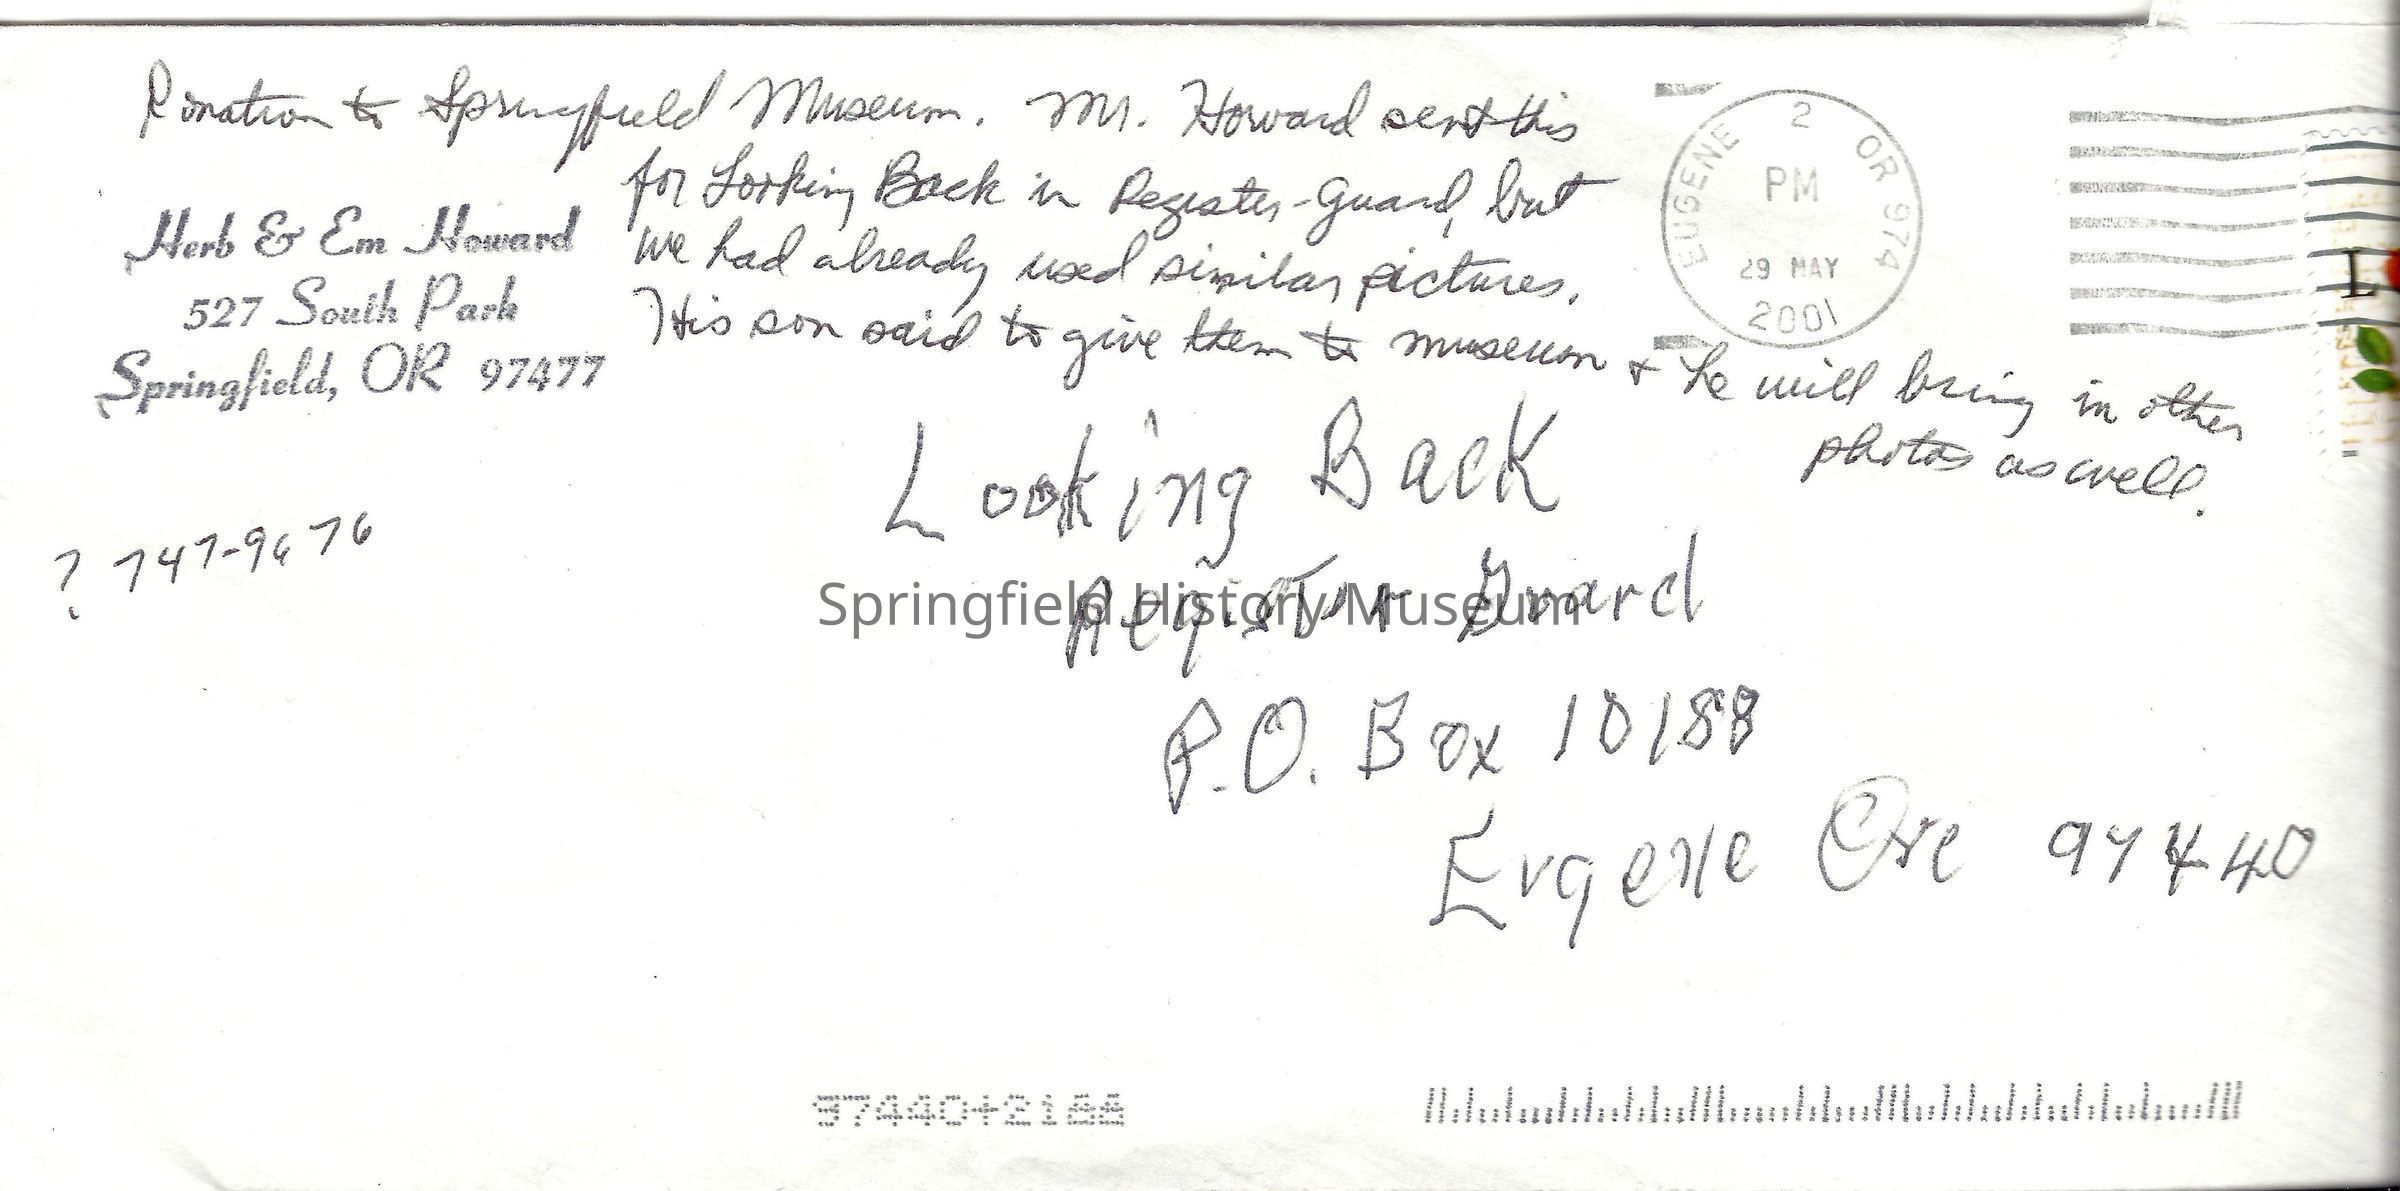 Donation to Springfield Museum. Mr. Howard sent this
for Looking Back in Register-Guard, but
we had already used similar pictures.
His son said to give them to museum + he will bring in other
photos as well.
Herb & Em Howard
527 South Park
Springfield, OR 97477
EUGENE OR 974
2
PM
29 MAY
2001
? 747-9676
Looking Back
Register Guard
Springfield History Museum
P.O. Box 10188
Eugene Ore 97440